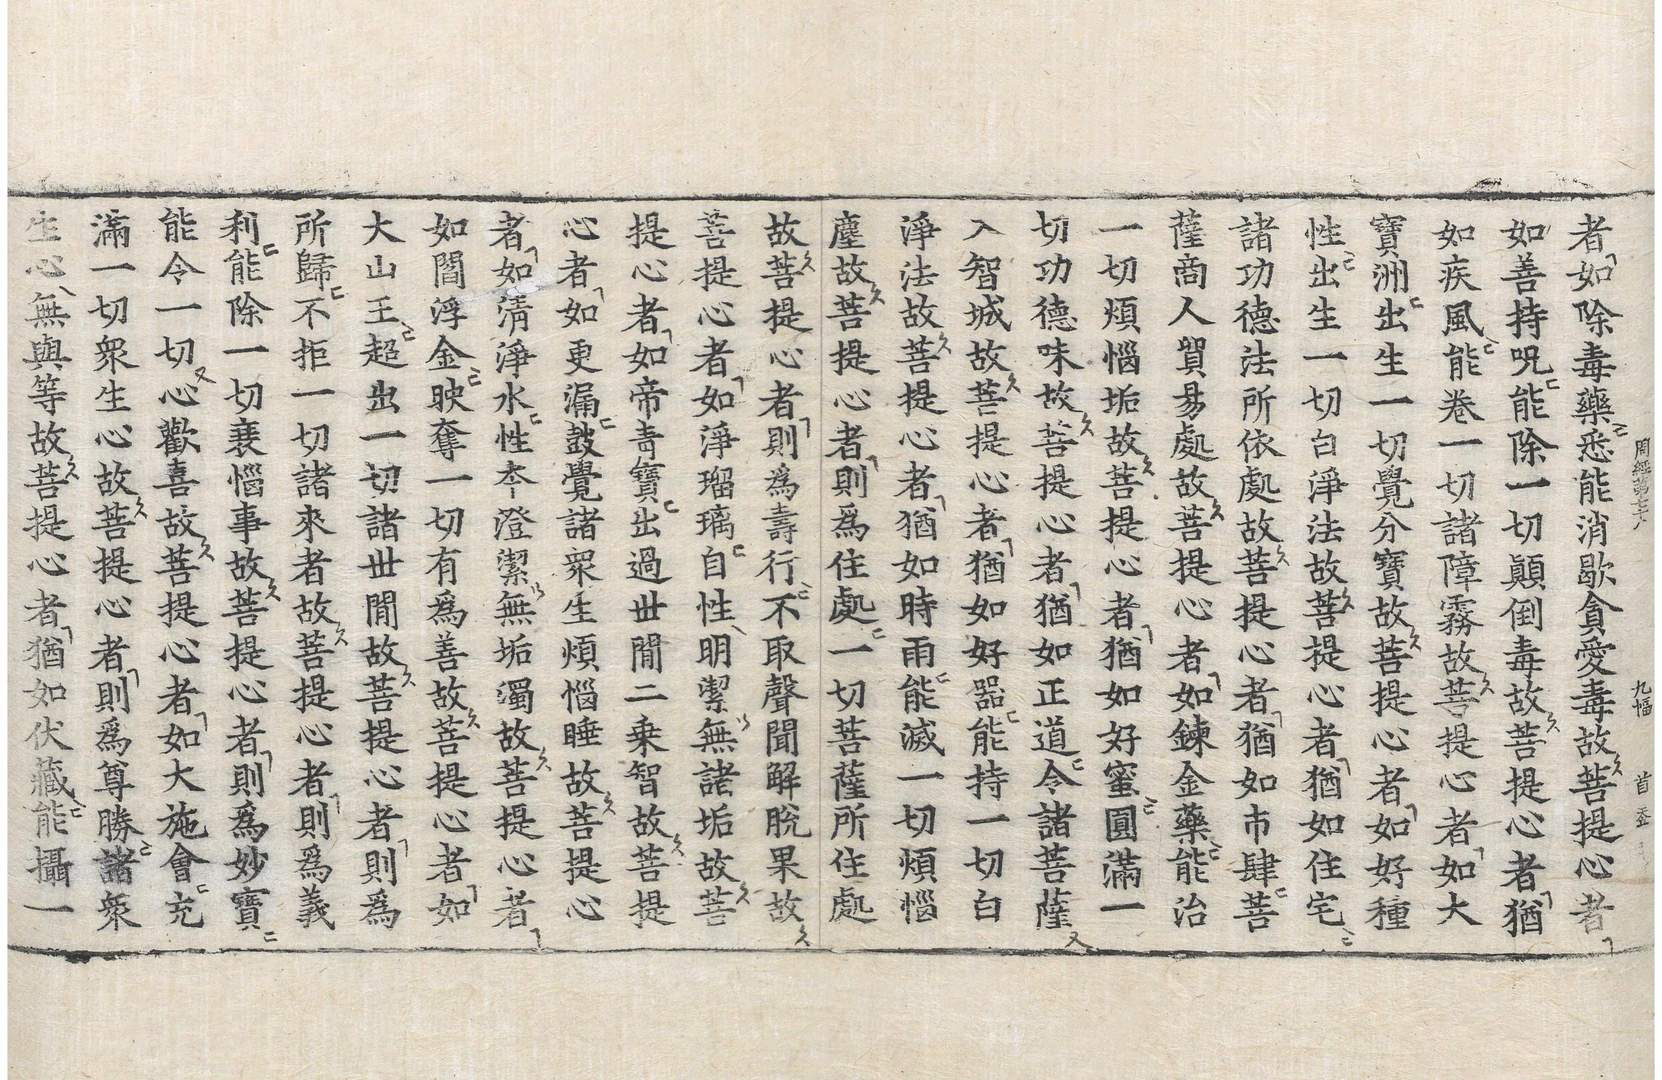 周經第七十八 九幅 首
者如除毒藥悉能消歇貪愛毒故菩提心者
如善持呪能除一切顚倒毒故菩提心者猶
如疾風能卷一切諸障霧故菩提心者如大
寶洲出生一切覺分寶故菩提心者如好種
性出生一切白淨法故菩提心者猶如住宅
諸功德法所依處故菩提心者猶如市肆菩
薩商人貿易處故菩提心者如鍊金藥能治
一切煩惱垢故菩提心者猶如好蜜圓滿一
切功德味故菩提心者猶如正道令諸菩薩
入智城故菩提心者猶如好器能持一切白
淨法故菩提心者猶如時雨能滅一切煩惱
塵故菩提心者則爲住處一切菩薩所住處
故菩提心者則爲壽行不取聲聞解脫果故
菩提心者如淨瑠璃自性明潔無諸垢故菩
提心者如帝靑寶出過丗閒二乗智故菩提
心者如更漏鼓覺諸衆生煩惱睡故菩提心
者如清淨水性夲澄潔無垢濁故菩提心者
如閻浮金映奪一切有爲善故菩提心者如
大山王超出一切諸丗閒故菩提心者則爲
所歸不拒一切諸來者故菩提心者則爲義
利能除一切衰惱事故菩提心者則爲妙寶
能令一切心歡喜故菩提心者如大施會充
滿一切衆生心故菩提心者則爲尊勝諸衆
生心無與等故菩提心者猶如伏藏能攝一